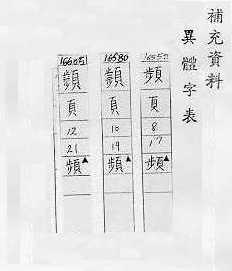 補充資料
異體字表
頻
頁
8
17
頻▲
16580
頁
10
19
頻▲
16605
頁
12
21
頻▲